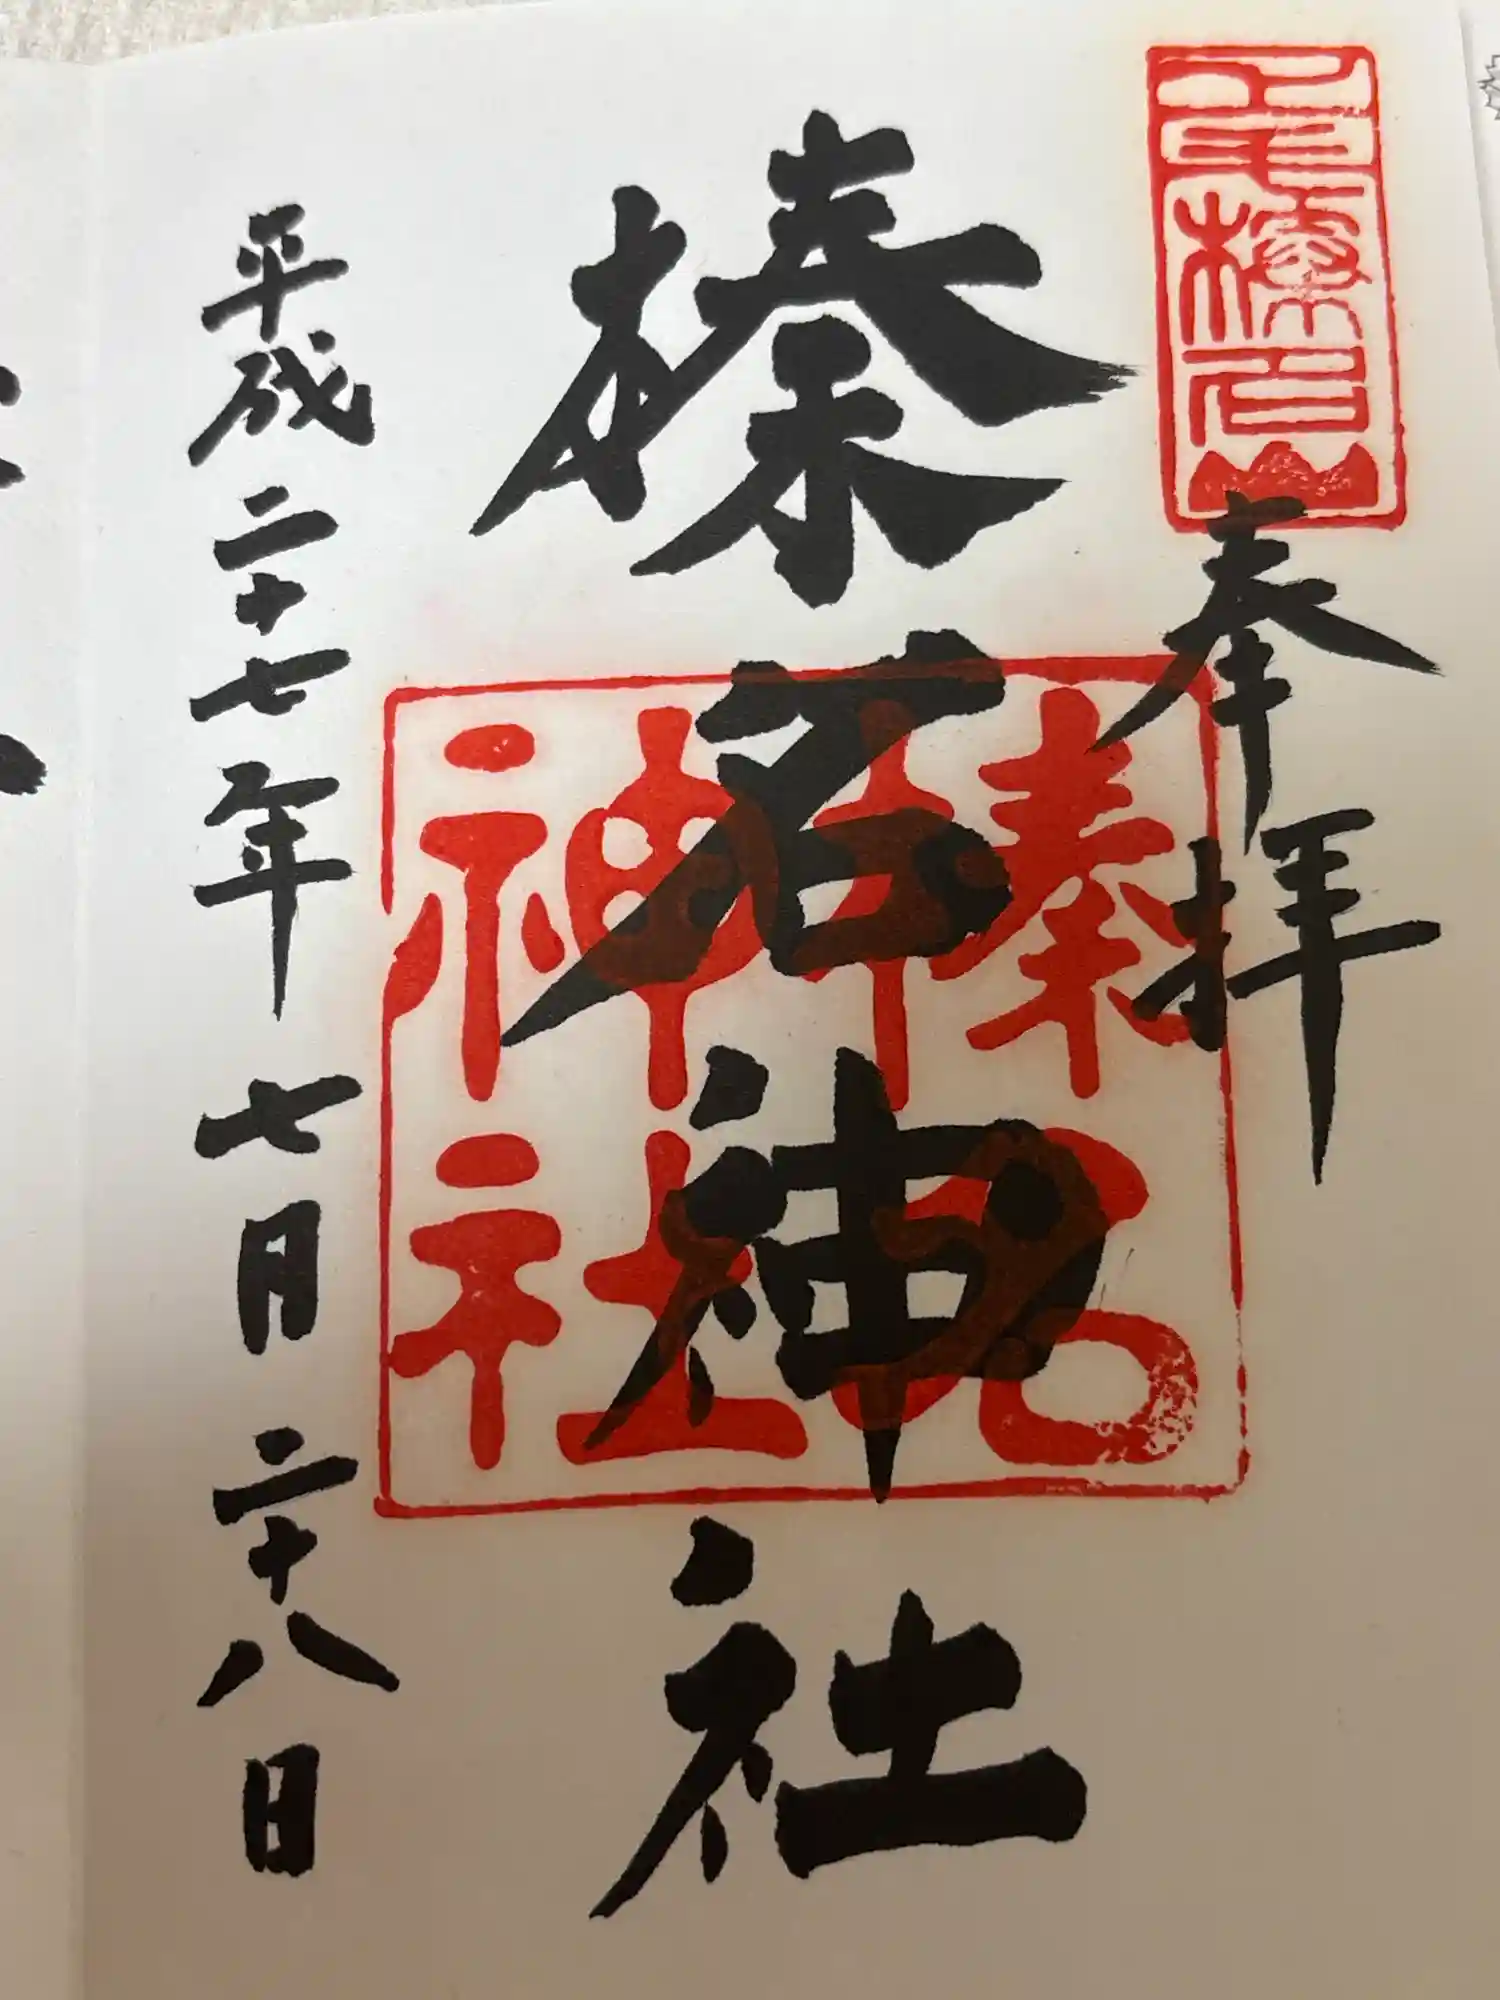 上毛榛名山
奉拝
榛名神社
榛名
神社
平成二十七年七月二十八日